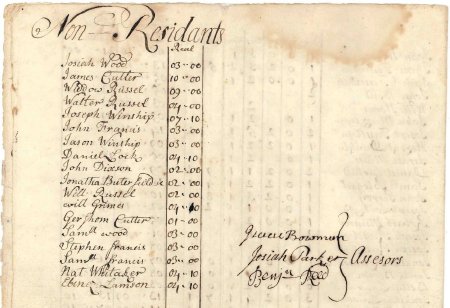 Non-Residants
Real
Josiah Wood 03-00
James Cutter 10-00
Widdow Russel 09-00
Walter Russel 04-00
Joseph Winship 07-10
John Francis 03-00
Jason Winship 03-00
Daniel Lock 04-10
John Dixson 02-00
Jonatha Buterfield 02-00
Will Russel 02-00
will Grimes 04-10
Gershom Cutter 01-00
Samll wood 03-00
Stephen Francis 03-00
Samll Francis 03-00
Nat Whitaker 04-10
Ebenz Lamson 04-10
Bowman
Josiah Parker Assesors
Benja Reed